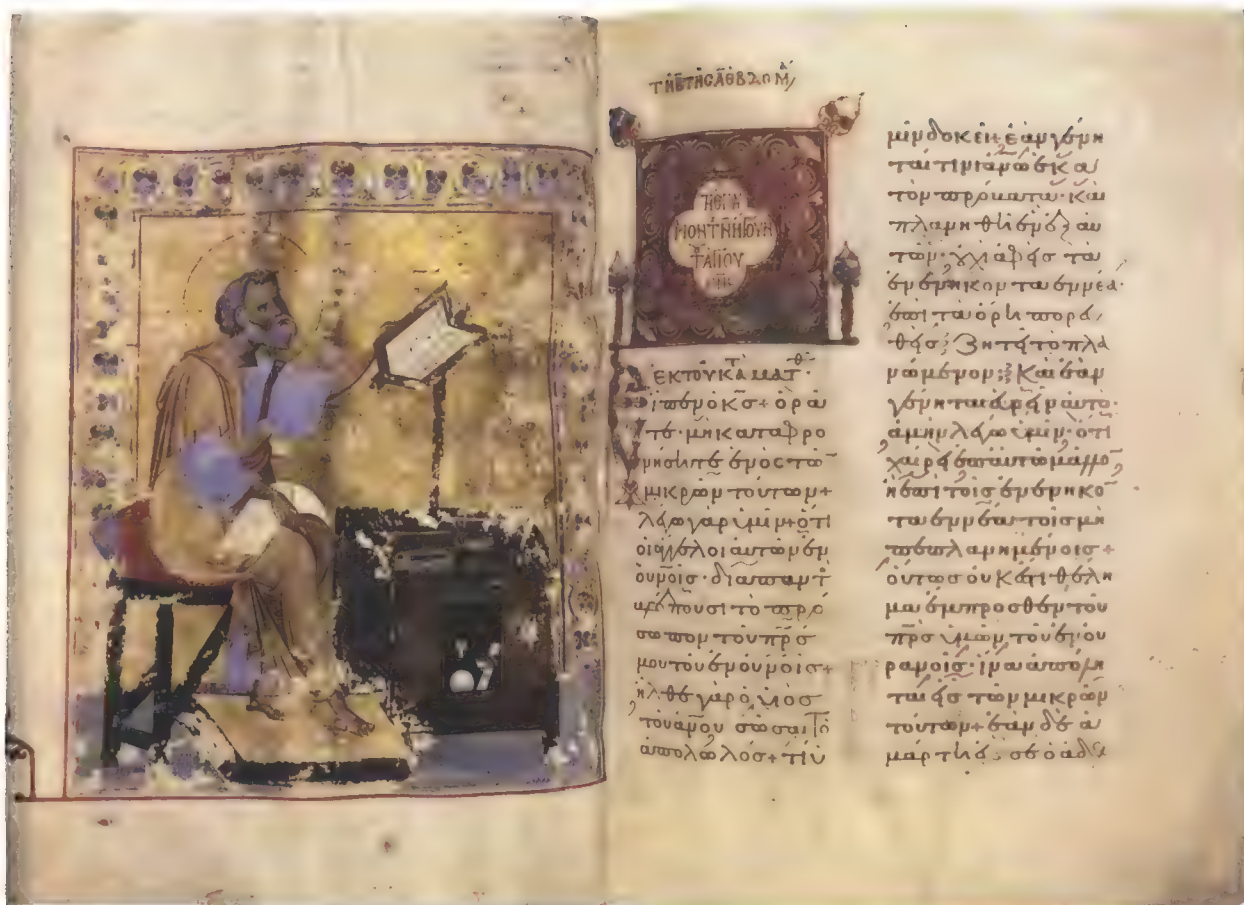 ΕΚ ΤΟΥ ΚΑΤΑ ΜΑΤΘ
εἶπεν ὁ κ̅ς̅ + ὁρᾶ
τε · μὴ καταφρο
νήσητε ἑνὸς τῶ
μικρῶν τούτων +
λέγω γὰρ ὑμῖν + ὅτι
οἱ ἄγγελοι αὐτῶν ἐν
ου̅νοῖς · διαπαντ
βλέπουσι τὸ πρό
σωπον τοῦ πρ̅ς̅
μου τοῦ ἐν ου̅νοις +
ἦλθε γὰρ ὁ υἱὸς
τοῦ α̅νου σῶσαι τὸ
ἀπολωλός + τί ὑ
μῖν δοκεῖ · ἐὰν γένη
ταί τινι ἀν̅ω ἑκα
τὸν πρόβατα · καὶ
πλανηθῆ ἓν ἐξ αὐ
τῶν · οὐχὶ ἀφεὶς τὰ
ἐνενηκονταεννέα ·
ἐπὶ τὰ ὄρη πορευ
θεὶς · ζητεῖ τὸ πλα
νώμενον ; καὶ ἐὰν
γένηται εὑρεῖν αὐτό ·
ἀμὴν λέγω ὑμῖν · ὅτι
χαίρει ἐπ αὐτῶ μᾶλλο
ἢ ἐπὶ τοῖς ἐνενηκο
ταεννέα τοῖς μὴ
πεπλανημένοις +
οὕτως οὐκ ἔστι θέλη
μα ἔμπροσθεν τοῦ
πρ̅ς̅ ὑμῶν τοῦ ἐν ου
ρανοῖς · ἵνα ἀπόλη
ται εἷς τῶν μικρῶν
τούτων + ἐὰν δὲ ἁ
μαρτήσει σε ὁ ἀδελ